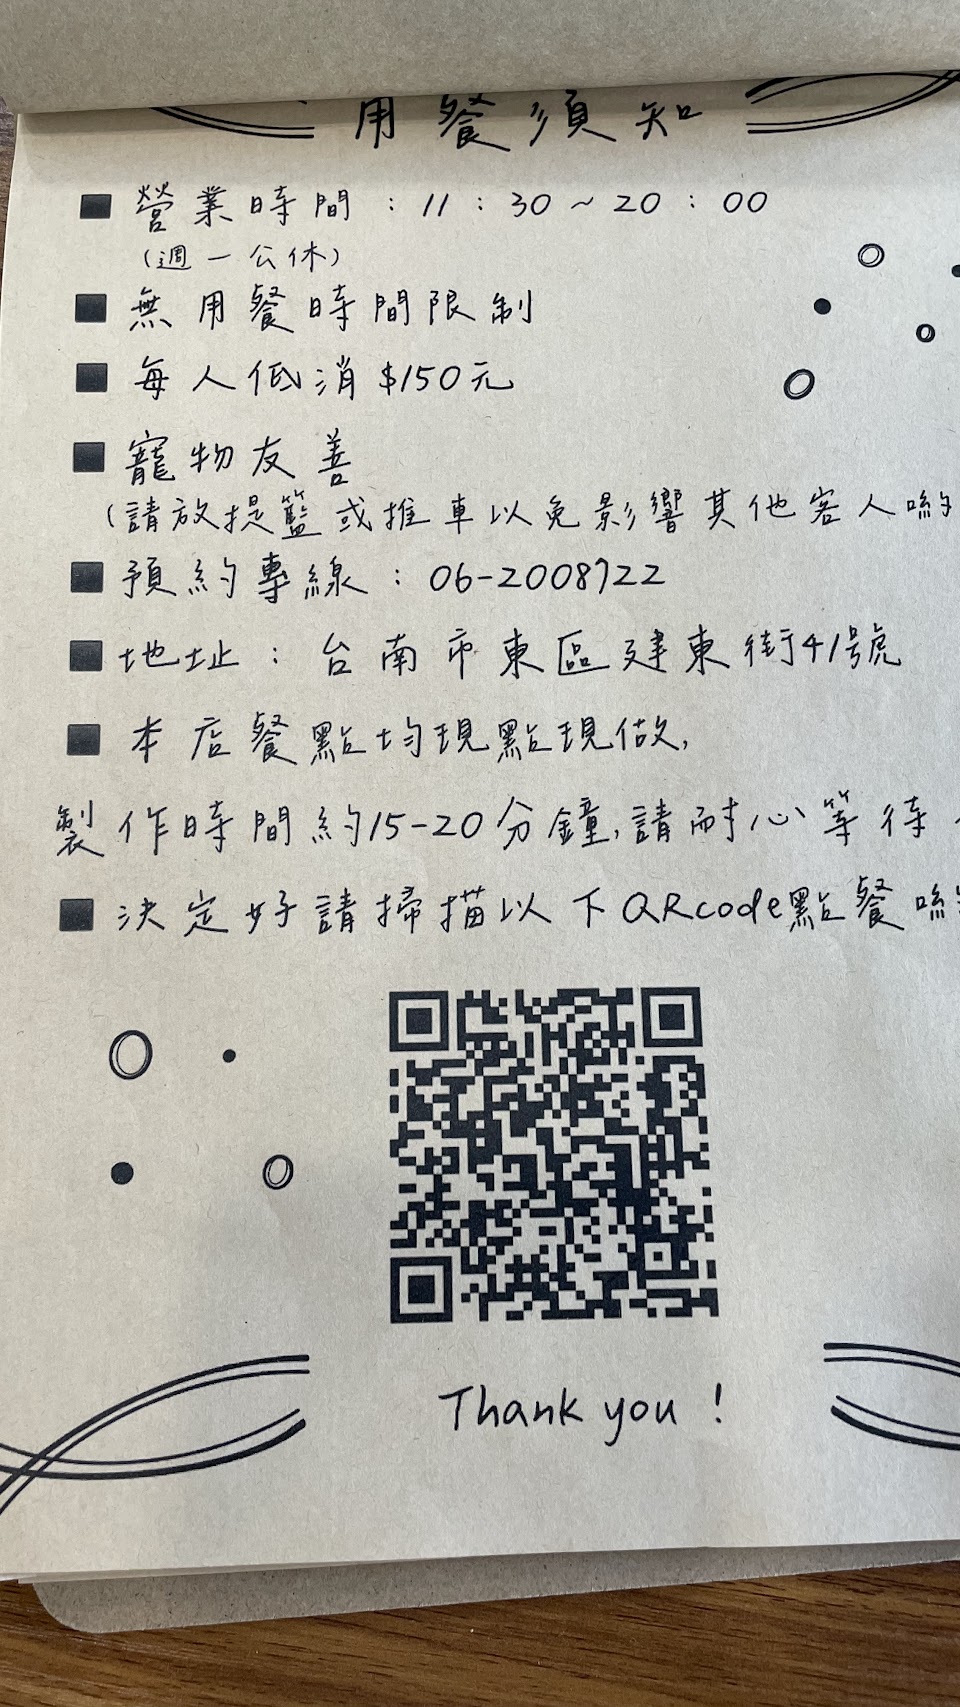 用餐須知
■ 營業時間：11：30～20：00
（週一公休）
■ 無用餐時間限制
■ 每人低消$150元
■ 寵物友善
（請放提籃或推車以免影響其他客人喲
■ 預約專線：06-2008722
■ 地址：台南市東區建東街41號
■ 本店餐點均現點現做,
製作時間約15-20分鐘,請耐心等待
■ 決定好請掃描以下QRcode點餐
Thank you !